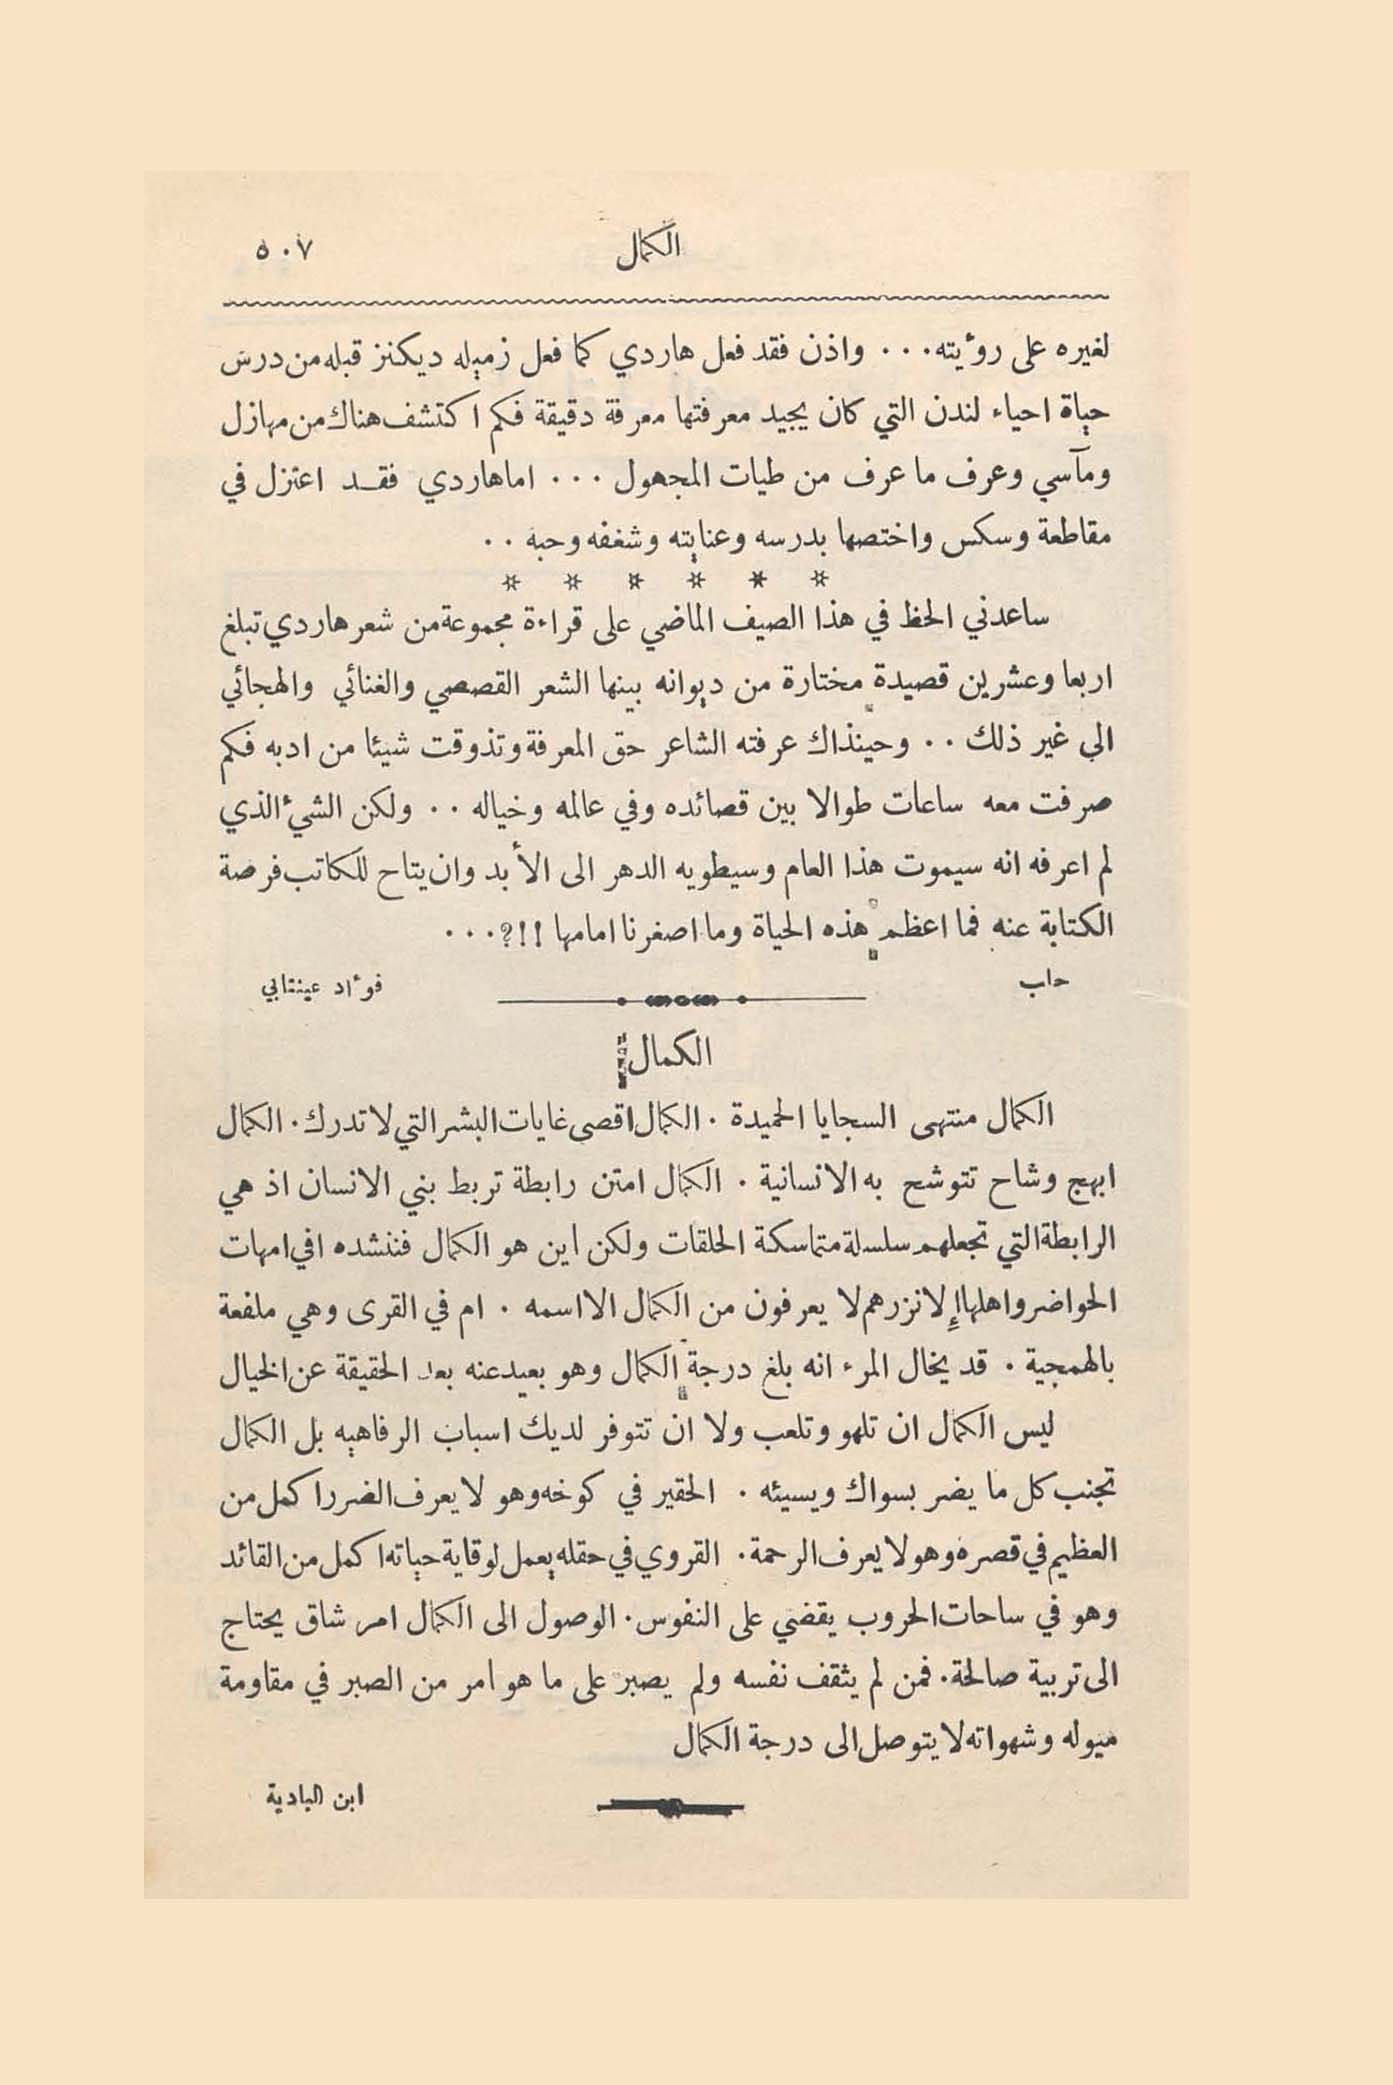 الكمال
٥٠٧
لغيره على روءيته... واذن فقد فعل هاردي كما فعل زميله ديكنز قبله من درس
حياة احياء لندن التي كان يجيد معرفتها معرفة دقيقة فكم اكتشف هناك من مهازل
ومآسي وعرف ما عرف من طيات المجهول ... اما هاردي فقد اعتزل في
مقاطعة وسكس واختصها بدرسه وعنايته وشغفه وحبه ..
* * * * * *
ساعدني الحظ في هذا الصيف الماضي على قراءة مجموعة من شعر هاردي تبلغ
اربعا وعشرين قصيدة مختارة من ديوانه بينها الشعر القصصي والغنائي والهجائي
الى غير ذلك .. وحينذاك عرفته الشاعر حق المعرفة وتذوقت شيئا من ادبه فكم
صرفت معه ساعات طوالا بين قصائده وفي عالمه وخياله .. ولكن الشيء الذي
لم اعرفه انه سيموت هذا العام وسيطويه الدهر الى الأبد وان يتاح للكاتب فرصة
الكتابة عنه فما اعظم هذه الحياة وما اصغرنا امامها !!؟...
حاب
فوءاد عينتابي
الكمال
الكمال منتهى السجايا الحميدة . الكمال اقصى غايات البشر التي لا تدرك . الكمال
ابهج وشاح تتوشح به الانسانية . الكمال امتن رابطة تربط بني الانسان اذ هي
الرابطة التي تجعلهم سلسلة متماسكة الحلقات ولكن اين هو الكمال فننشده افي امهات
الحواضر واهلها إلا نزرهم لا يعرفون من الكمال الا اسمه . ام في القرى وهي ملفعة
بالهمجية . قد يخال المرء انه بلغ درجة الكمال وهو بعيد عنه بعد الحقيقة عن الخيال
ليس الكمال ان تلهو وتلعب ولا ان تتوفر لديك اسباب الرفاهيه بل الكمال
تجنب كل ما يضر بسواك ويسيئه . الحقير في كوخه وهو لا يعرف الضرر اكمل من
العظيم في قصره وهو لا يعرف الرحمة . القروي في حقله يعمل لوقاية حياته اكمل من القائد
وهو في ساحات الحروب يقضي على النفوس . الوصول الى الكمال امر شاق يحتاج
الى تربية صالحة . فمن لم يثقف نفسه ولم يصبر على ما هو امر من الصبر في مقاومة
ميوله وشهواته لا يتوصل الى درجة الكمال
ابن البادية